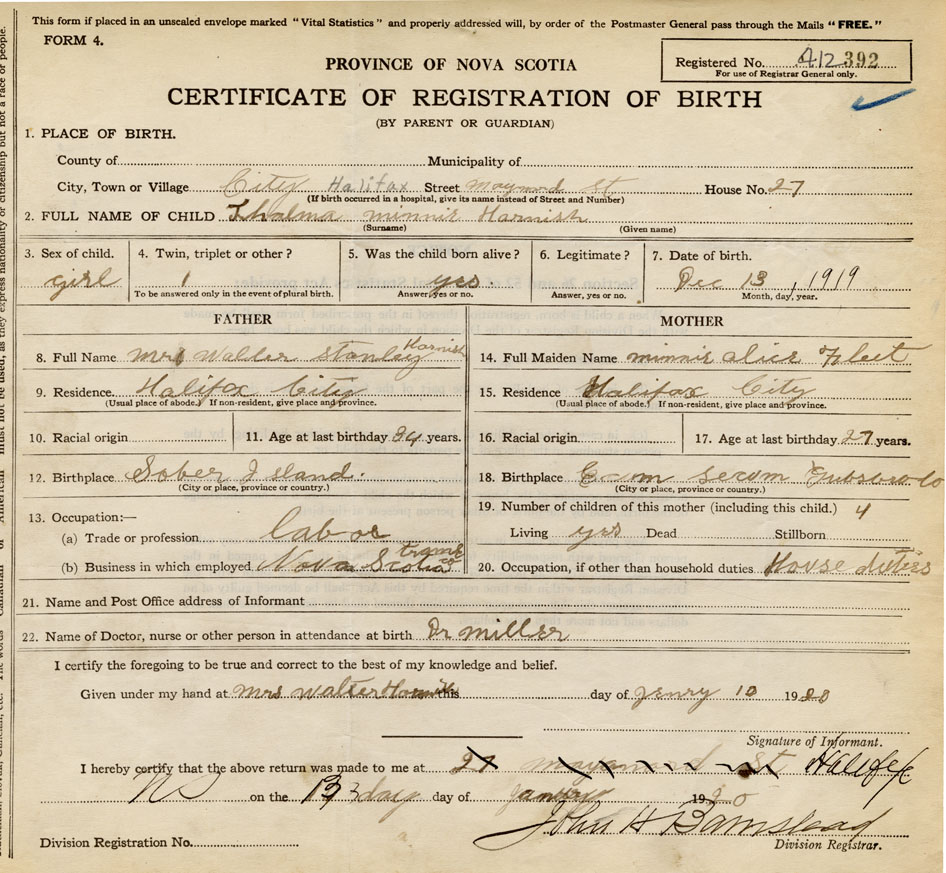 This form if placed in an unscaled envelope marked "Vital Statistics" and properly addressed will, by order of the Postmaster General pass through the Mails "FREE."
FORM 4.
Registered No. 412 392
For use of Registrar General only.
PROVINCE OF NOVA SCOTIA
CERTIFICATE OF REGISTRATION OF BIRTH
(BY PARENT OR GUARDIAN)
1. PLACE OF BIRTH.
County of Municipality of
City, Town or Village City Halifax Street Maynard St House No. 27
(If birth occurred in a hospital, give its name instead of Street and Number)
2. FULL NAME OF CHILD Thalma minnie Harnish
(Surname) (Given name)
3. Sex of child. girl
4. Twin, triplet or other? 1
To be answered only in the event of plural birth.
5. Was the child born alive? yes.
Answer, yes or no.
6. Legitimate?
Answer, yes or no.
7. Date of birth.
Dec 13, 1919
Month, day, year.
FATHER
8. Full Name Mrs Walter Stanley Harnish
9. Residence Halifax City
(Usual place of abode.) If non-resident, give place and province.
10. Racial origin
11. Age at last birthday 34 years.
12. Birthplace Sober Island.
(City or place, province or country.)
13. Occupation:—
(a) Trade or profession labor
(b) Business in which employed Nova Scotia tramk
MOTHER
14. Full Maiden Name minnie alice Fleet
15. Residence Halifax City
(Usual place of abode.) If non-resident, give place and province.
16. Racial origin
17. Age at last birthday 27 years.
18. Birthplace Ecum secum
(City or place, province or country.)
19. Number of children of this mother (including this child.) 4
Living yes Dead Stillborn
20. Occupation, if other than household duties House duties
21. Name and Post Office address of Informant
22. Name of Doctor, nurse or other person in attendance at birth Dr miller
I certify the foregoing to be true and correct to the best of my knowledge and belief.
Given under my hand at Mrs Walter Harnish this day of Jenry 10 1920
Signature of Informant.
I hereby certify that the above return was made to me at 27 maynard St Halifax
NS on the 13 3 day day of 1920
John H Barnstead
Division Registration No. Division Registrar.